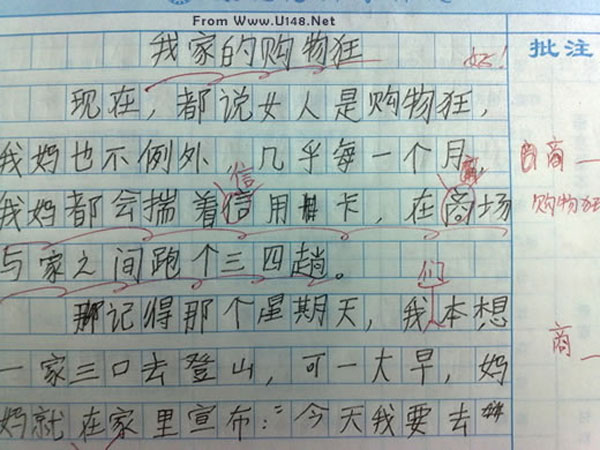 From Www.U148.Net
我家的购物狂
好!
批注
现在，都说女人是购物狂，
我妈也不例外 几乎每一个月，
商
购物狂
信
我妈都会揣着信用卡，在商场
与家之间跑个三四趟。
们
那记得那个星期天，我本想
商
一家三口去登山，可一大早，妈
妈就在家里宣布：“今天我要去